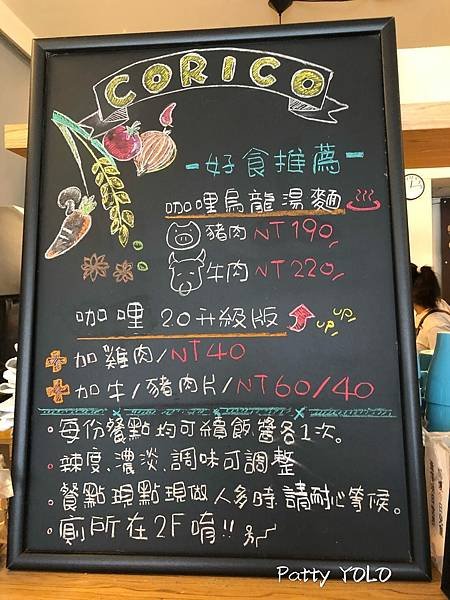 CORICO
-好食推薦-
咖哩烏龍湯麵
豬肉 NT190
牛肉 NT220
咖哩 2.0升級版 UP UP
+加雞肉/NT40
+加牛/豬肉片/NT60/40
•每份餐點均可續飯.醬各1次。
•辣度.濃淡.調味可調整
•餐點現點現做人多時.請耐心等候。
•廁所在2F唷!!
Patty YOLO